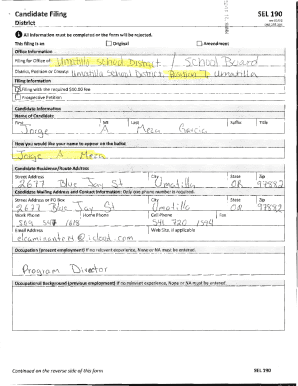 Candidate Filing
District
SEL 190
All information must be completed or the form will be rejected.
This filing is an
Original
Amendment
Office Information
Filing for Office of: Umatilla School District / School Board
District, Position or County: Umatilla School District, Position 1, Umatilla
Filing Information
Filing with the required $10.00 fee
Prospective Petition
Candidate Information
Name of Candidate
First MI Last Suffix Title
Jorge A Meza Garcia
How you would like your name to appear on the ballot
Jorge A. Meza
Candidate Residence/Route Address
Street Address City State Zip
2677 Blue Jay St Umatilla OR 97882
Candidate Mailing Address and Contact Information: Only one phone number is required.
Street Address or PO Box City State Zip
2677 Blue Jay St Umatilla OR 97882
Work Phone Home Phone Cell Phone Fax
541 720 1594
Email Address Web Site, if applicable
Occupation (present employment) If no relevant experience, None or NA must be entered.
Program Director
Occupational Background (previous employment) If no relevant experience, None or NA must be entered.
Continued on the reverse side of this form
SEL 190